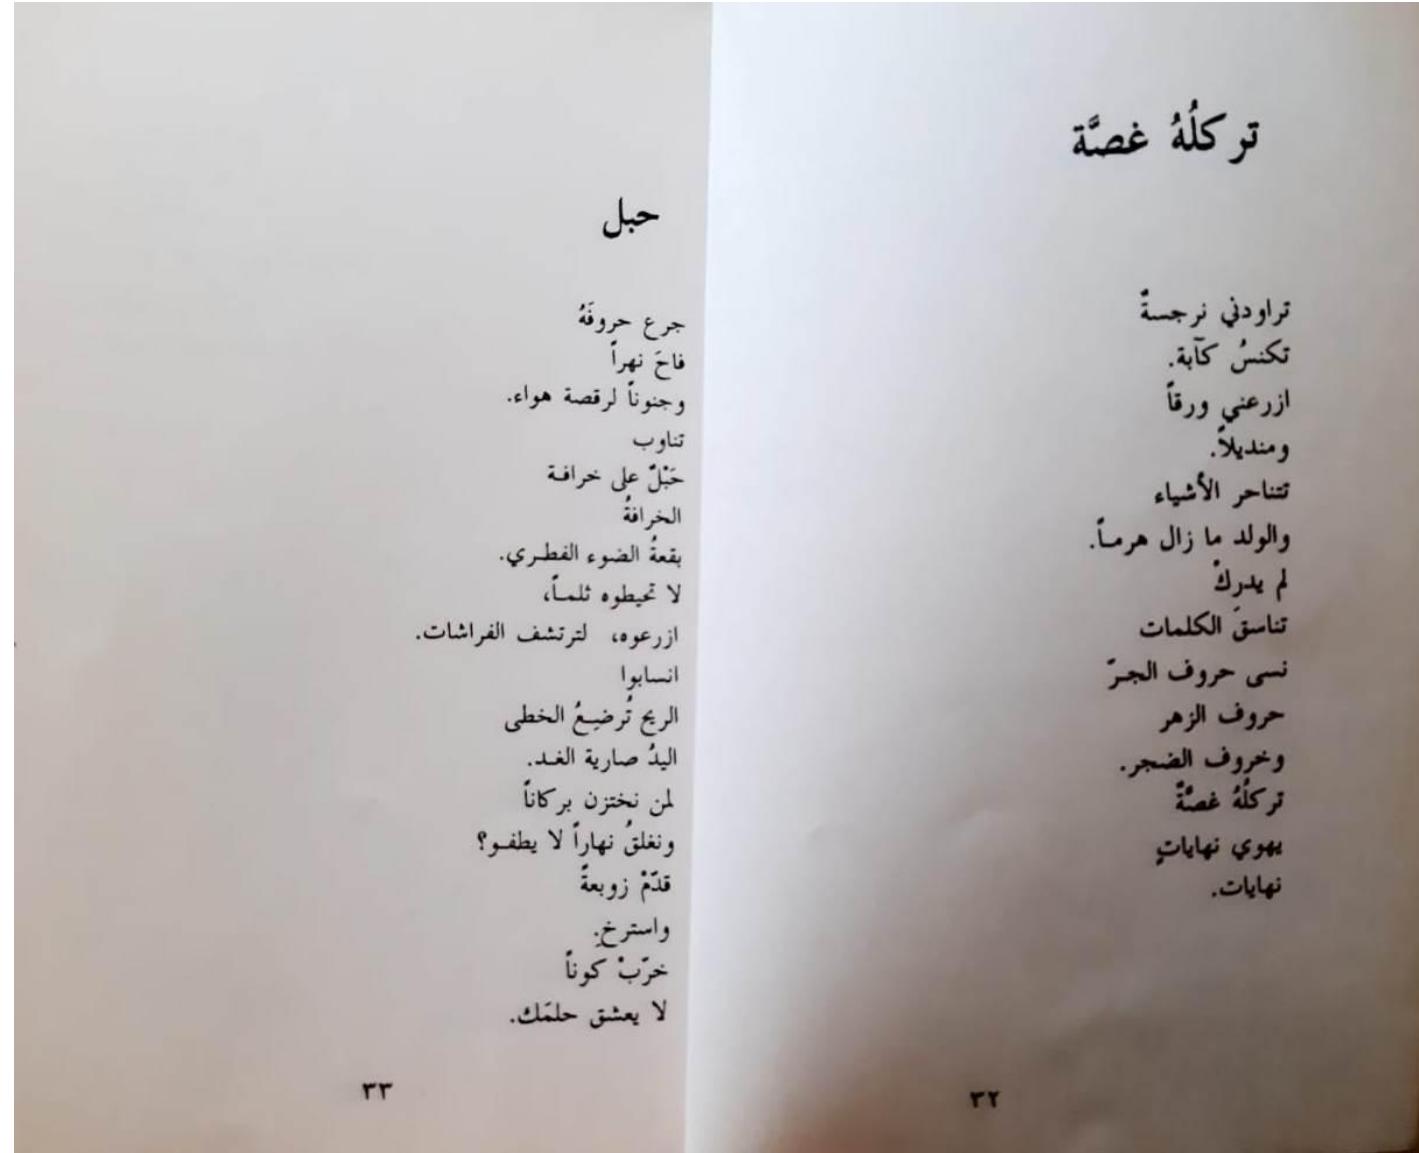 تركلُهُ غصَّة
تراودني نرجسةٌ
تكنسُ كآبة.
ازرعني ورقاً
ومنديلاً.
تتناحر الأشياء
والولد ما زال هرماً.
لم يدركْ
تناسقَ الكلمات
نسى حروف الجرّ
حروف الزهر
وخروف الضجر.
تركلُهُ غصَّةٌ
يهوي نهاياتٍ
نهايات.
٣٢
حبل
جرع حروفَهُ
فاحَ نهراً
وجنوناً لرقصة هواء.
تناوب
حَبْلٌ على خرافة
الخرافةُ
بقعةُ الضوء الفطري.
لا تحيطوه ثلماً،
ازرعوه، لترتشف الفراشات.
انسابوا
الريح تُرضِعُ الخطى
اليدُ صارية الغد.
لمن نختزن بركاناً
ونغلقُ نهاراً لا يطفو؟
قدّمْ زوبعةً
واسترخِ.
خرّبْ كوناً
لا يعشق حلمَك.
٣٣